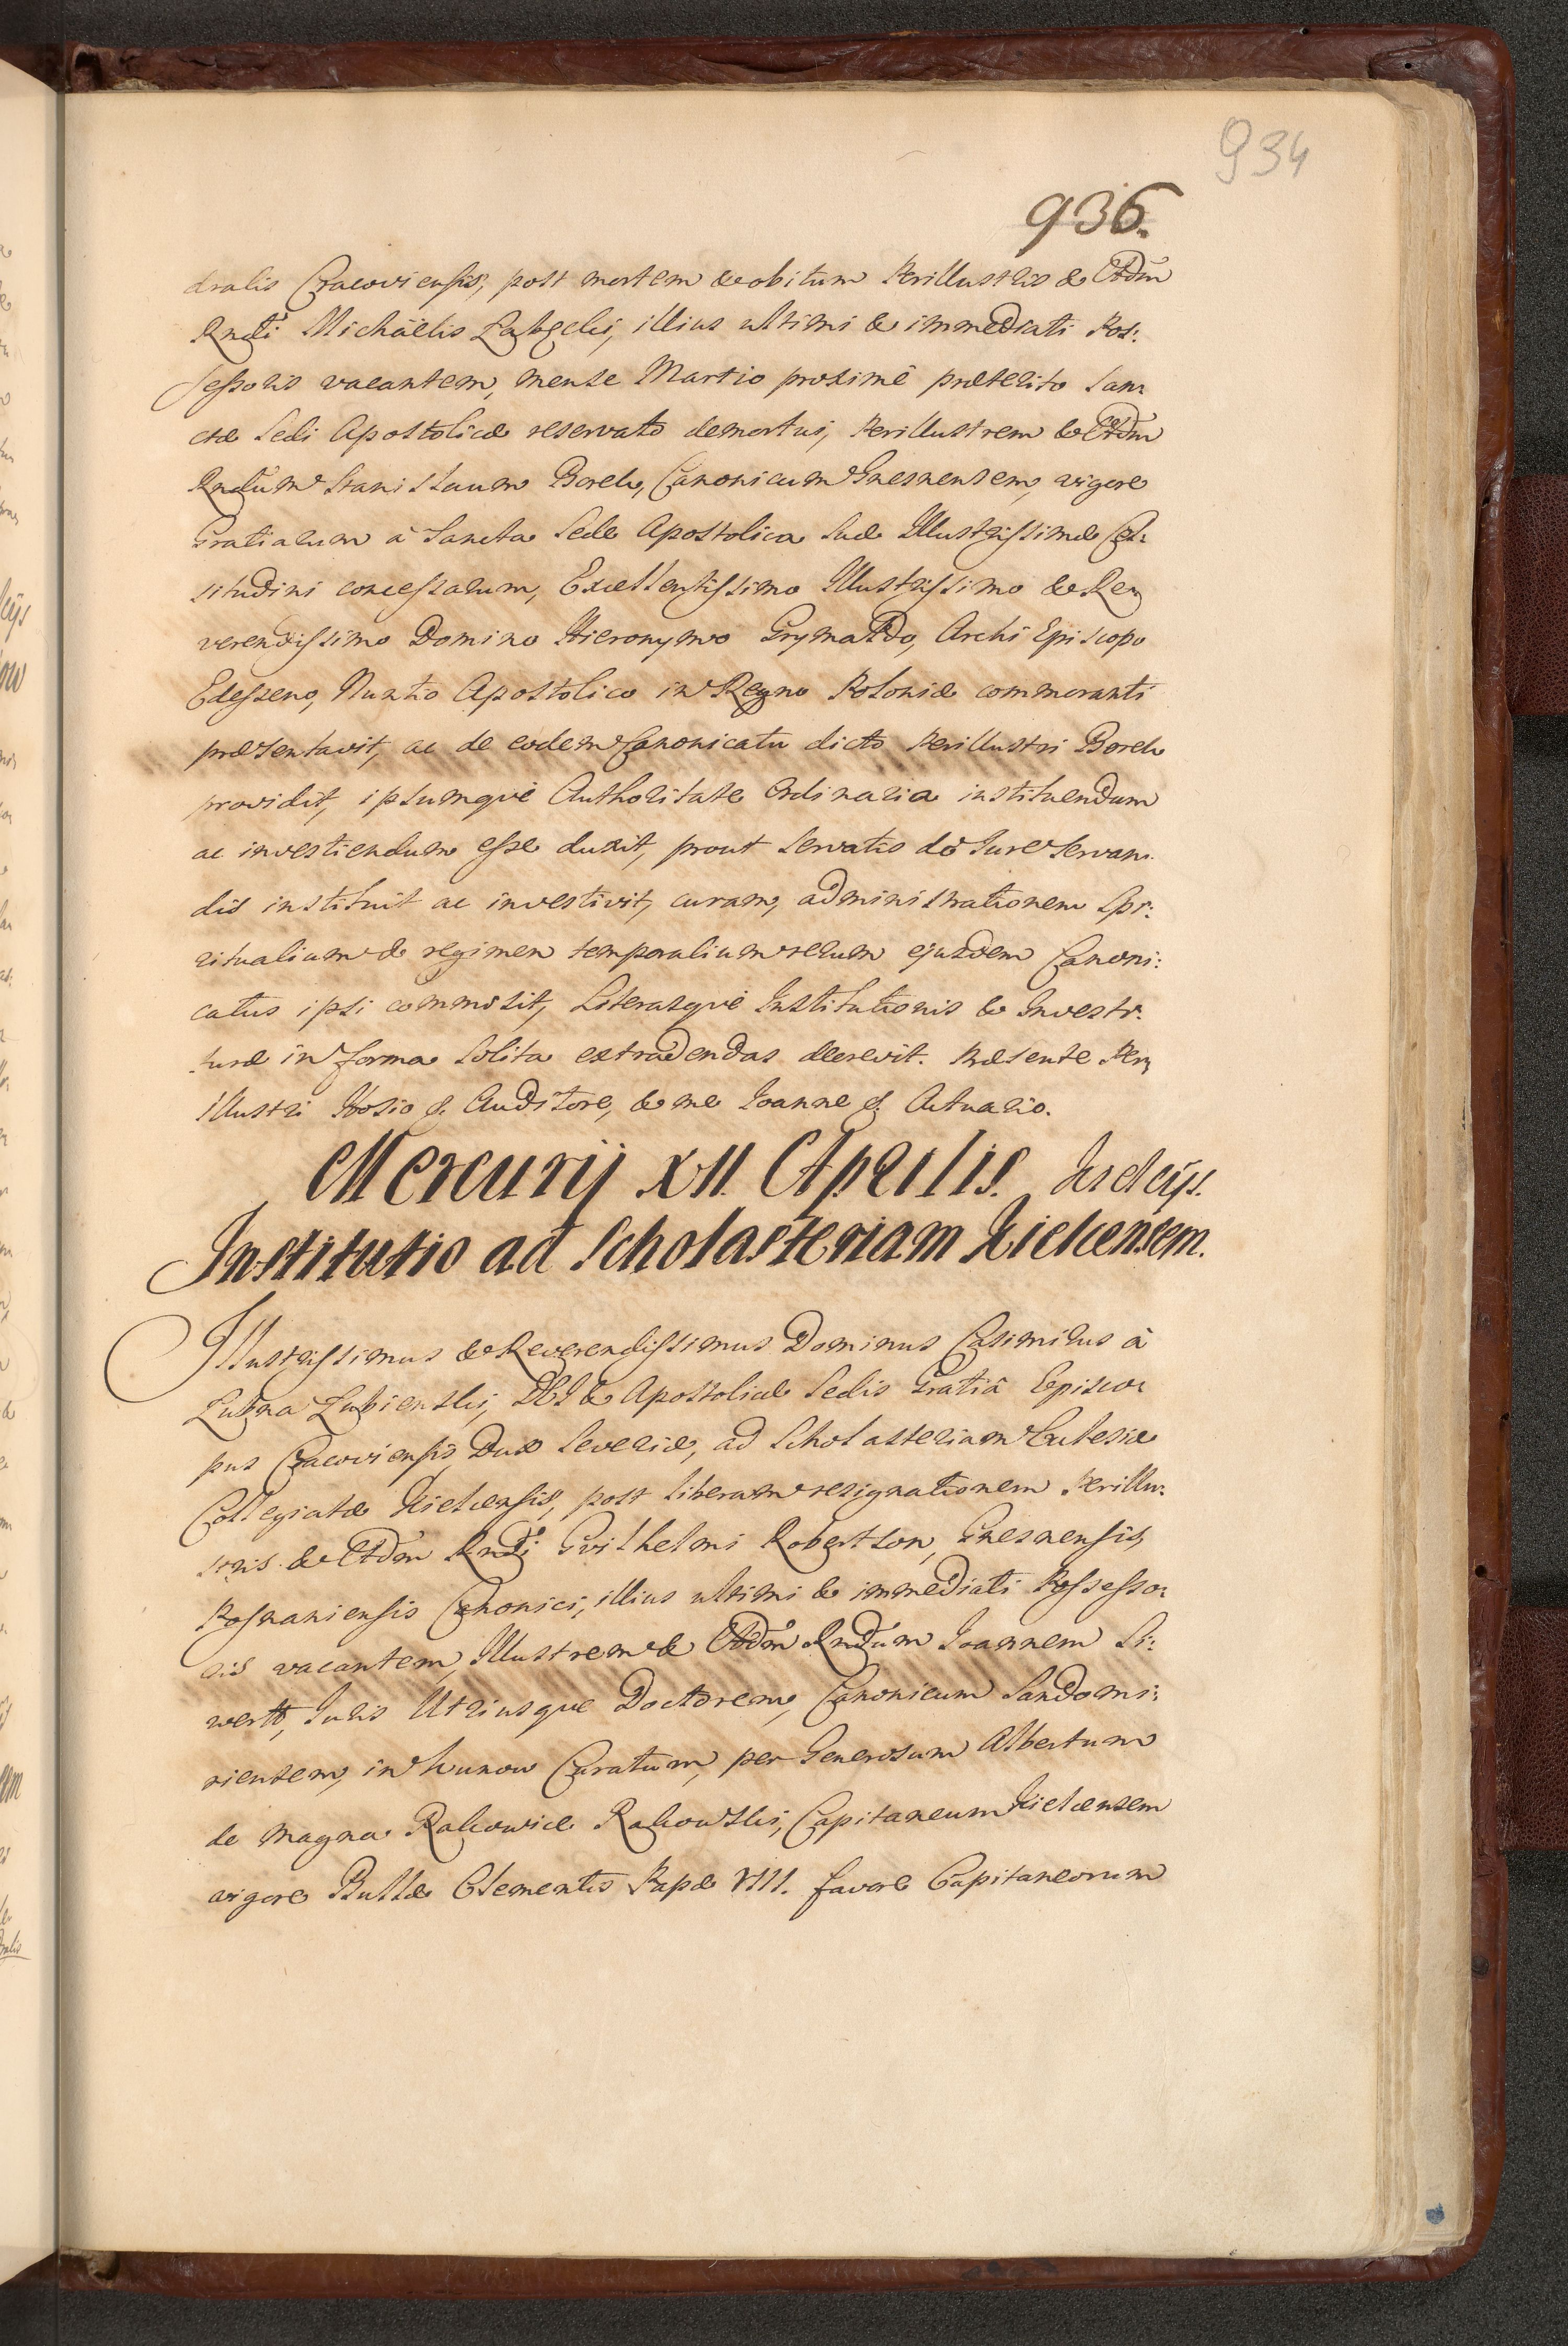 934
936.
dralis Cracoviensis, post mortem & obitum Perillustris & Adm̃
Rndi Michäelis Łabęcki, illius ultimi & immediati Pos:
sessoris vacantem, mense Martio proximê præterito San:
ctæ Sedi Apostolicæ reservato demortui, Perillustrem & Adm̃
Rndum Stanislaum Borek, Canonicum Gnesnensem, vigore
Gratiarum â Sancta Sede Apostolica Suæ Illustrissimæ Cel:
situdini concessarum, Excellentissimo Illustrissimo & Re
verendissimo Domino Hieronymo Grymaldo, Archi Episcopo
Edesseno, Nuntio Apostolico in Regno Poloniæ commoranti
præsentavit, ac de eodem Canonicatu dicto Perillustri Borek
providit, ipsumque Authoritate Ordinaria instituendum
ac investiendum esse duxit, prout servatis de Jure servan:
dis instituit ac investivit, curam, administrationem Spi:
ritualium & regimen temporalium rerum ejusdem Canoni:
catus ipsi commisit, Literasque Institutionis & Investi:
turæ in forma solita extradendas decrevit. Præsente Per
Illustri Hosio &. Auditore, & me Joanne &. Actuario.
Mercurij XII. Aprilis. Kielcijs.
Institutio ad Scholasteriam Kielcensem.
Illustrissimus & Reverendissimus Dominus Casimirus â
Łubna Łubienski, DEI & Apostolicæ Sedis Gratiâ Episco:
pus Cracoviensis, Dux Severiæ, ad Scholasteriam Ecclesiæ
Collegiatæ Kielcensis, post liberam resignationem Perillu:
stris & Adm̃ Rndi Gvilhelmi Robertson, Gnesnensis,
Posnaniensis Canonici, illius ultimi & immediati Possesso:
ris vacantem, Illustrem & Adm̃ Rndum Joannem Si:
wertt, Juris Utriusque Doctorem, Canonicum Sandomi:
riensem, in Kunow Curatum, per Generosum Albertum
de Magna Rakowice Rakowski, Capitaneum Kielcensem
vigore Bullæ Clementis Papæ VIII. favore Capitaneorum